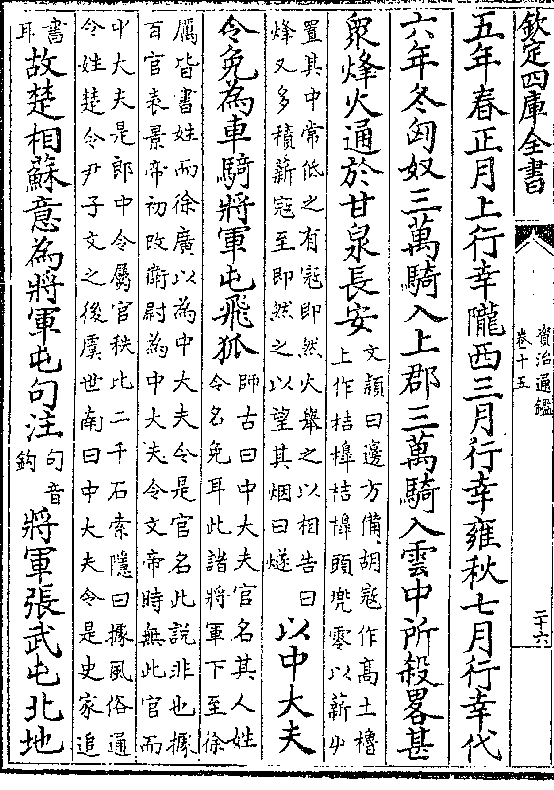 欽定四庫全書
資治通鑑
卷十五
二十六
五年春正月上行幸隴西三月行幸雍秋七月行幸代
六年冬匈奴三萬騎入上郡三萬騎入雲中所殺畧甚
衆烽火通於甘泉長安
文頴曰邊方備胡寇作高土櫓
上作桔橰桔橰頭兠零以薪艸
置其中常低之有寇即然火舉之以相告曰
烽又多積薪寇至即然之以望其烟曰燧
以中大夫
令免為車騎將軍屯飛狐
師古曰中大夫官名其人姓
令名免耳此諸將軍下至徐
厲皆書姓而徐廣以為中大夫令是官名此說非也據
百官表景帝初改衛尉為中大夫令文帝時無此官而
中大夫是郎中令屬官秩比二千石索隱曰據風俗通
令姓楚令尹子文之後虞世南曰中大夫令是史家追
書
耳
故楚相蘇意為將軍屯句注
句音
鈎
將軍張武屯北地